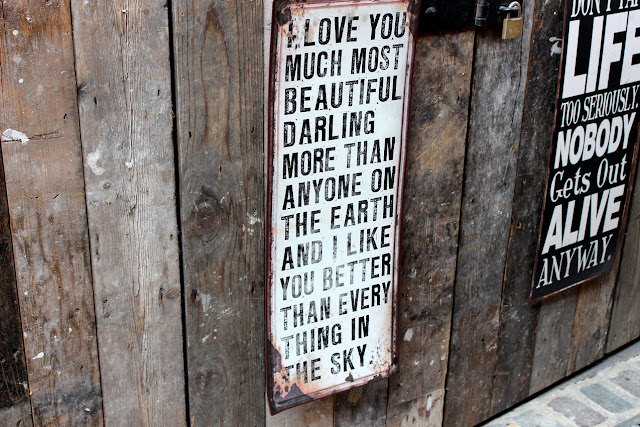 I LOVE YOU
MUCH MOST
BEAUTIFUL
DARLING
MORE THAN
ANYONE ON
THE EARTH
AND I LIKE
YOU BETTER
THAN EVERY
THING IN
THE SKY.
DON'T
LIFE
TOO SERIOUSLY.
NOBODY
Gets Out
ALIVE
ANYWAY.